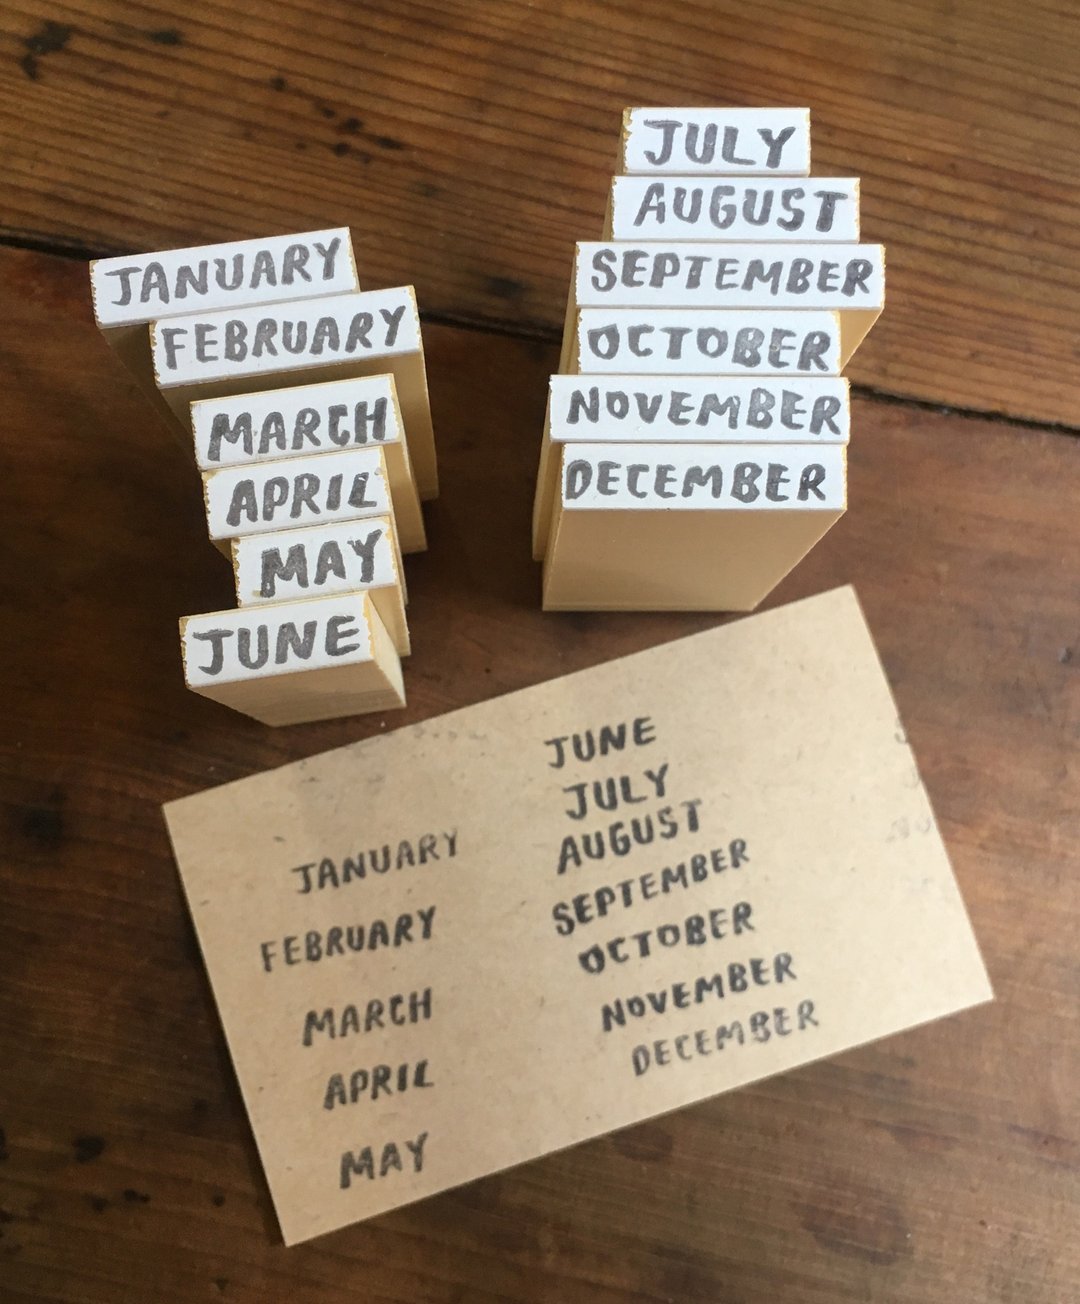 JANUARY
FEBRUARY
MARCH
APRIL
MAY
JUNE
JULY
AUGUST
SEPTEMBER
OCTOBER
NOVEMBER
DECEMBER
JANUARY
FEBRUARY
MARCH
APRIL
MAY
JUNE
JULY
AUGUST
SEPTEMBER
OCTOBER
NOVEMBER
DECEMBER